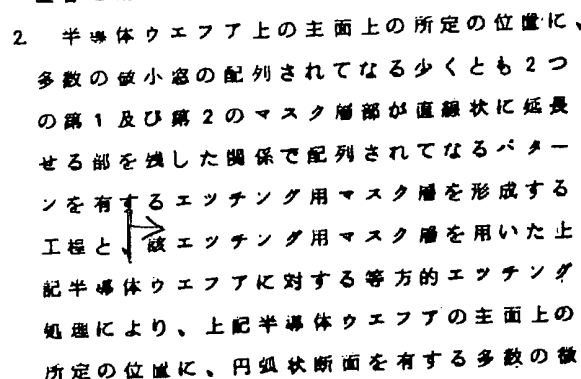 2. 半導体ウエフア上の主面上の所定の位置に、
多数の微小窓の配列されてなる少くとも2つ
の第1及び第2のマスク層部が直線状に延長
せる部を残した関係で配列されてなるパター
ンを有するエッチング用マスク層を形成する
工程と、該エッチング用マスク層を用いた上
記半導体ウエフアに対する等方的エッチング
処理により、上記半導体ウエフアの主面上の
所定の位置に、円弧状断面を有する多数の微